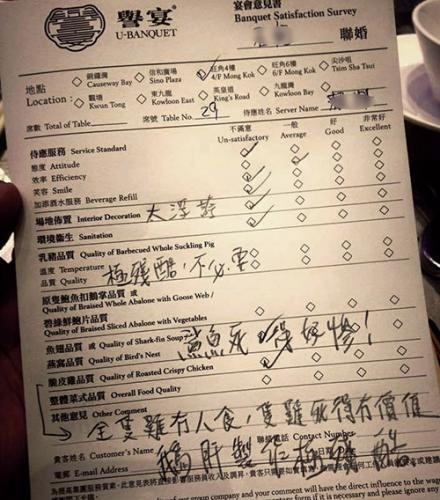 譽宴
U-BANQUET
宴會意見書
Banquet Satisfaction Survey
聯婚
地點
Location :
銅鑼灣 Causeway Bay
信和廣場 Sino Plaza
旺角4樓 4/F Mong Kok
旺角6樓 6/F Mong Kok
尖沙咀 Tsim Sha Tsui
觀塘 Kwun Tong
東九龍 Kowloon East
英皇道 King's Road
九龍灣 Kowloon Bay
席數 Total of Table
席號 Table No. 29
侍應姓名 Server Name
不滿意 Un-satisfactory
一般 Average
好 Good
非常好 Excellent
侍應服務 Service Standard
態度 Attitude
效率 Efficiency
笑容 Smile
加添酒水服務 Beverage Refill
場地佈置 Interior Decoration 大浮誇
環境衛生 Sanitation
乳豬品質 Quality of Barbecued Whole Suckling Pig
溫度 Temperature
品質 Quality
極殘酷,不必要
原隻鮑魚扣鵝掌品質 /
Quality of Braised Whole Abalone with Goose Web /
碧綠鮮鮑片品質
Quality of Braised Sliced Abalone with Vegetables
魚翅品質 或 Quality of Shark-fin Soup
燕窩品質 Quality of Bird's Nest
鯊魚死得好慘!
脆皮雞品質 Quality of Roasted Crispy Chicken
整體菜式品質 Overall Food Quality
其他意見 Other Comment
全隻雞冇人食,隻雞死得冇價值
貴客姓名 Customer's Name
聯絡電話 Contact Number
鵝肝製作極殘酷
電郵 E-mail Address